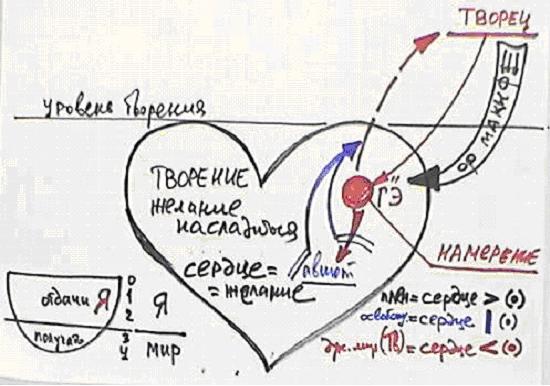 ТВОРЕЦ
уровень творения
ОР МАКИФ
ТВОРЕНИЕ
желание
насладиться
ГЭ
сердце=
=желание
авиют
НАМЕРЕНИЕ
отдачи Я
получ
0
1
2
3
4
Я
мир
плен=сердце > (0)
=сердце | (0)
=сердце < (0)